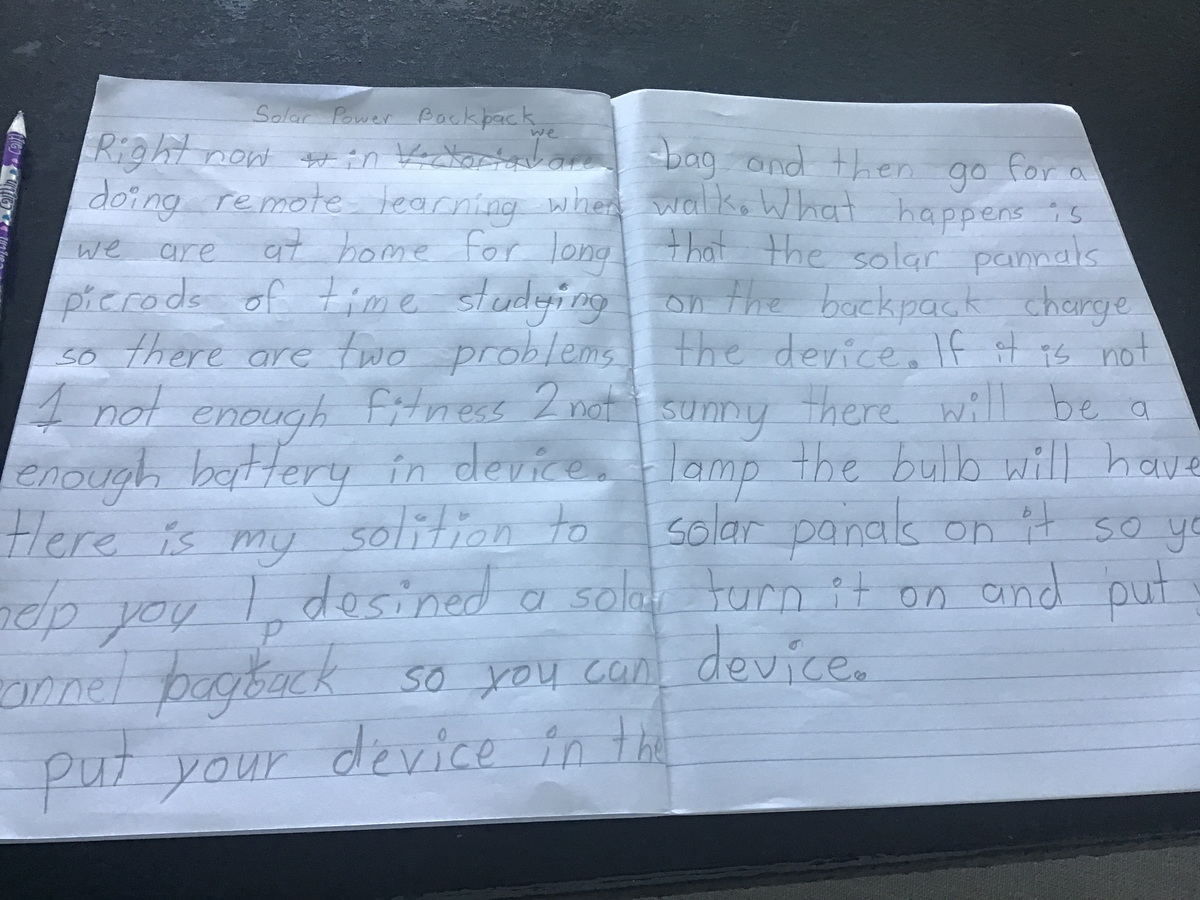 Solar Power Backpack
Right now in Victoria we are
doing remote learning when
we are at home for long
pierods of time studying
so there are two problems
1 not enough fitness 2 not
enough battery in device.
Here is my solition to
help you I desined a solar
pannel bagpack so you can
put your device in the
bag and then go for a
walk. What happens is
that the solar pannals
on the backpack charge
the device. If it is not
sunny there will be a
lamp the bulb will have
solar panals on it so
turn it on and put
device.